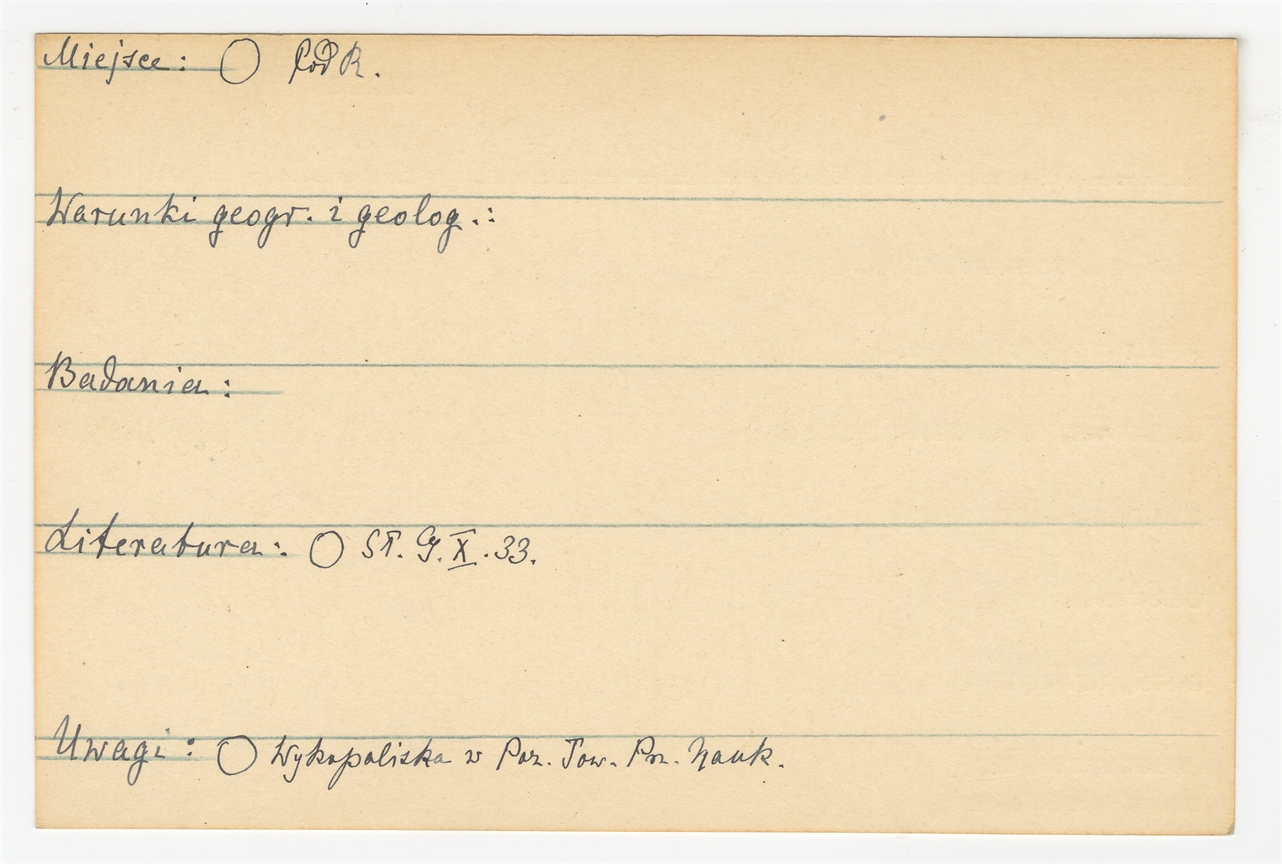 Miejsce: ◯ PodR.
Warunki geogr. i geolog.:
Badania:
Literatura: ◯ ST. G. X. 33.
Uwagi: ◯ Wykopaliska w Poz. Tow. Prz. Nauk.